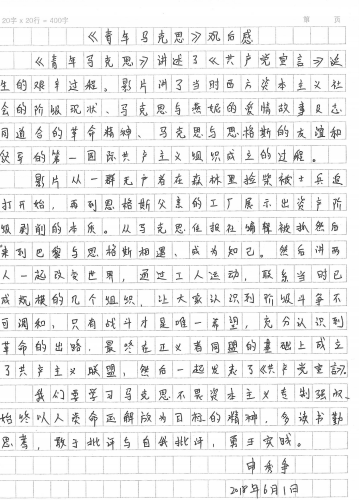 20字 x 20行 = 400字 第 页
《青年马克思》观后感
《青年马克思》讲述了《共产党宣言》诞
生的艰辛过程。影片讲了当时西方资本主义社
会的阶级现状、马克思与燕妮的爱情故事及志
同道合的革命精神、马克思与恩格斯的友谊和
伙写的第一国际共产主义组织成立的过程。
影片从一群无产者在森林里捡柴被士兵追
打开始,再到恩格斯父亲的工厂展示出资产阶
级剥削的本质。从马克思任报社编辑被抓然后
来到巴黎与恩格斯相遇、成为知己。然后讲两
人一起改变世界,通过工人运动,联系当时已
成规模的几个组织,让大家认识到阶级斗争不
可调和,只有战斗才是唯一希望,充分认识到
革命的出路,最终在正义者同盟的基础上成立
了共产主义联盟,然后一起发表了《共产党宣言》。
我们要学习马克思不畏资本主义专制强权、
始终以人类命运解放为目标的精神,多读书勤
思考,敢于批评与自我批评,勇于实践。
申秀争
2018年6月1日